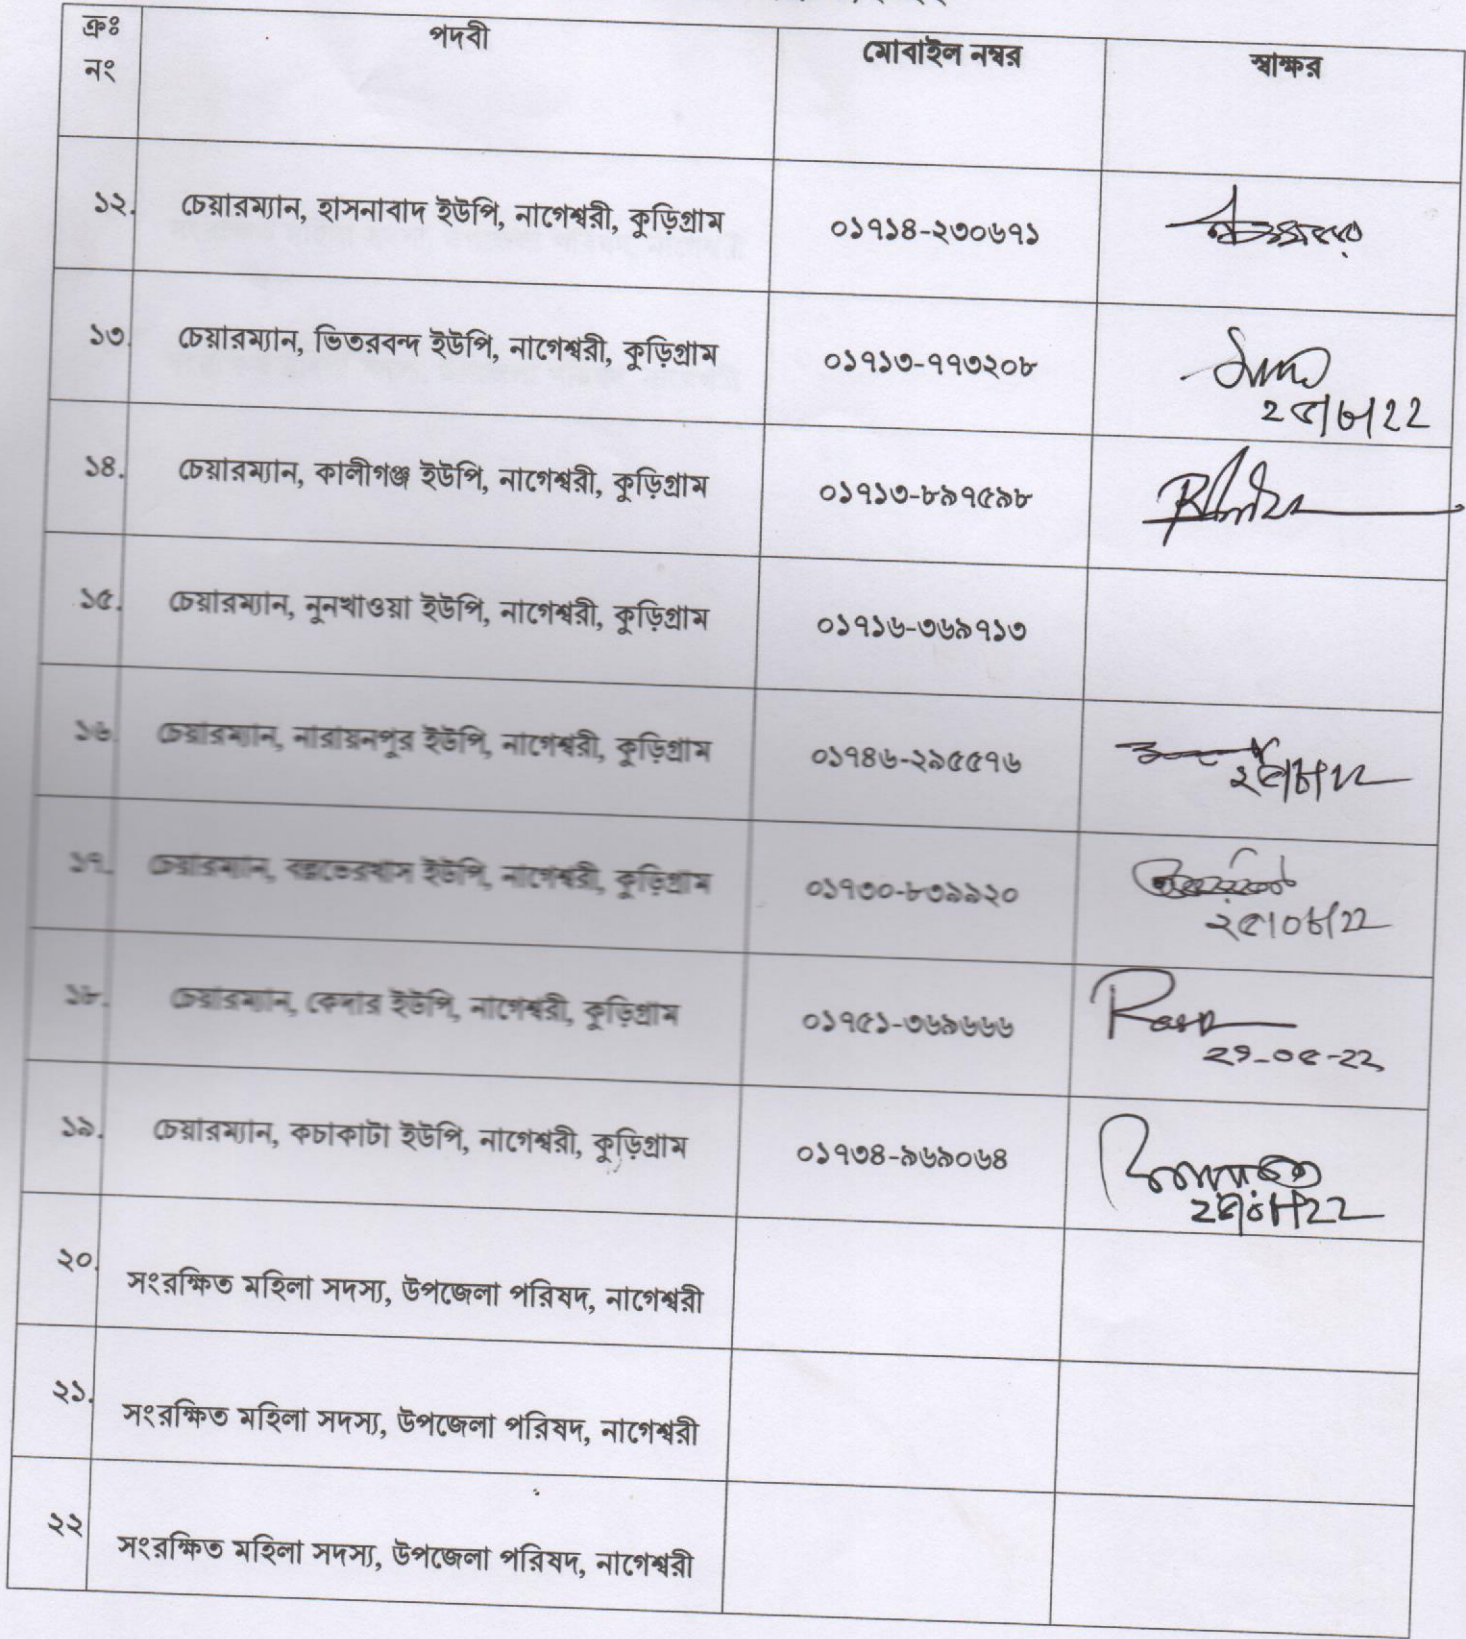 ক্রঃ নং পদবী মোবাইল নম্বর স্বাক্ষর
১২. চেয়ারম্যান, হাসনাবাদ ইউপি, নাগেশ্বরী, কুড়িগ্রাম ০১৭১৪-২৩০৬৭১
১৩. চেয়ারম্যান, ভিতরবন্দ ইউপি, নাগেশ্বরী, কুড়িগ্রাম ০১৭১৩-৭৭৩২০৮
১৪. চেয়ারম্যান, কালীগঞ্জ ইউপি, নাগেশ্বরী, কুড়িগ্রাম ০১৭১৩-৮৯৭৫৯৮
১৫. চেয়ারম্যান, নুনখাওয়া ইউপি, নাগেশ্বরী, কুড়িগ্রাম ০১৭১৬-৩৬৯৭১৩
১৬. চেয়ারম্যান, নারায়নপুর ইউপি, নাগেশ্বরী, কুড়িগ্রাম ০১৭৪৬-২৯৫৫৭৬
১৭. চেয়ারম্যান, বল্লভেরখাস ইউপি, নাগেশ্বরী, কুড়িগ্রাম ০১৭৩০-৮৩৯৯২০
২৫|০৮/22
১৮. চেয়ারম্যান, কেদার ইউপি, নাগেশ্বরী, কুড়িগ্রাম ০১৭৫১-৩৬৯৬৬৬
১৯. চেয়ারম্যান, কচাকাটা ইউপি, নাগেশ্বরী, কুড়িগ্রাম ০১৭৩৪-৯৬৯০৬৪
২০. সংরক্ষিত মহিলা সদস্য, উপজেলা পরিষদ, নাগেশ্বরী
২১. সংরক্ষিত মহিলা সদস্য, উপজেলা পরিষদ, নাগেশ্বরী
২২ সংরক্ষিত মহিলা সদস্য, উপজেলা পরিষদ, নাগেশ্বরী